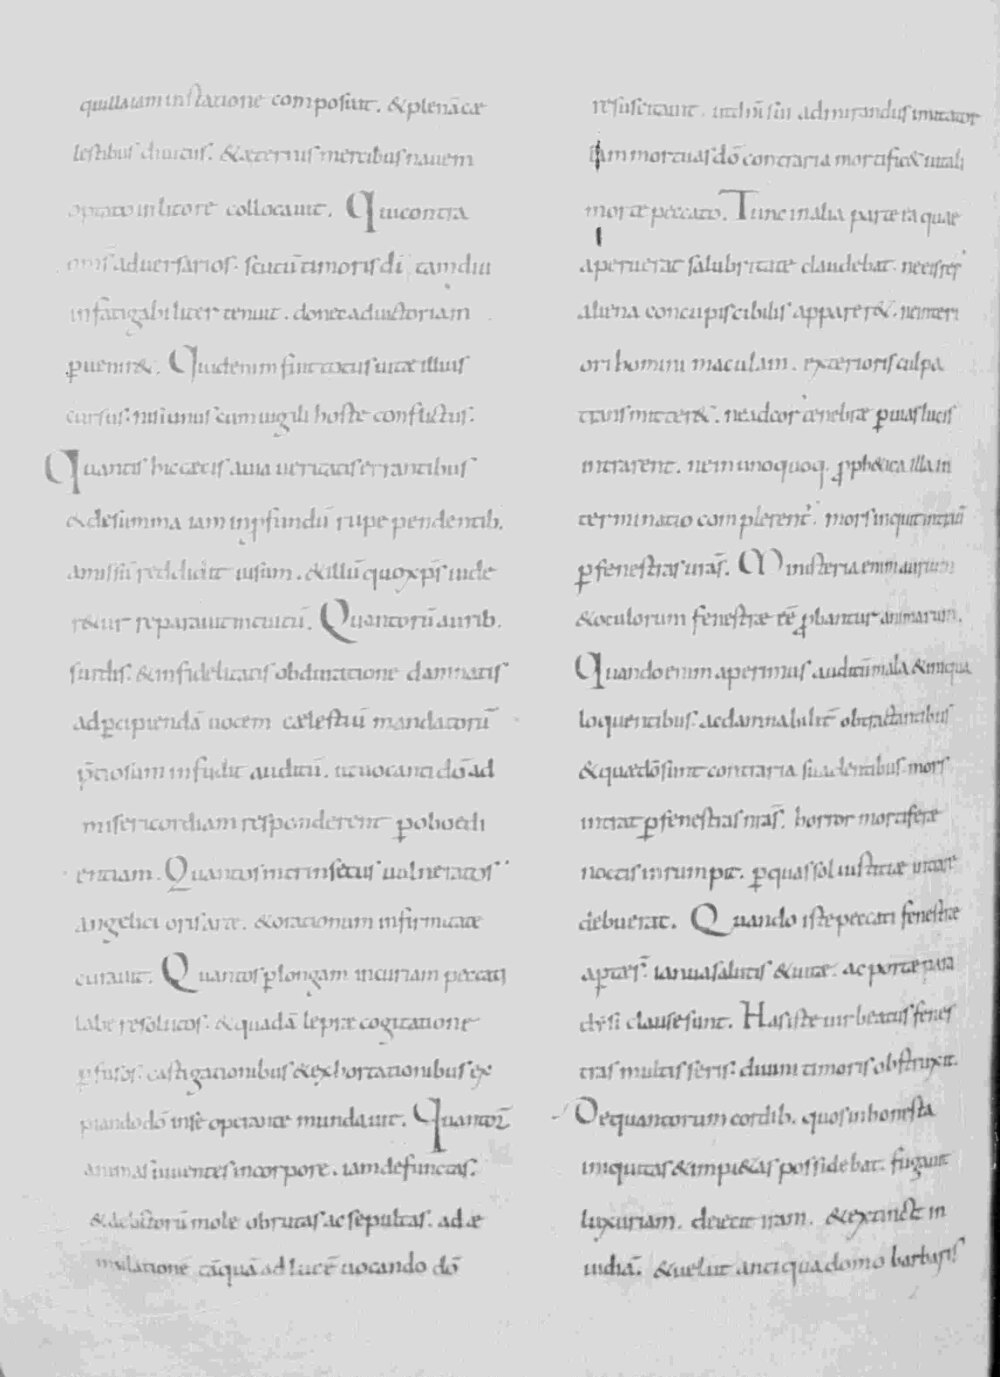 quillaiam in statione composuit. & plenā cæ
lestibus diuitiis. & æternis mercibus nauem
optato in litore collocauit. Qui contra
om̄s aduersarios. scutū timoris dī tamdiu
infatigabiliter tenuit. donec ad uictoriam
ꝑuenir&. Quid enim fuit totus uitæ illius
cursus: nisi unus cum uigili hoste conflictus:
Quantis hic cæcis. a uia ueritatis errantibus
& de summa iam in ꝓfundū rupe pendentib.
amissū reddidit uisum. & illū quo xp̄s uide
r&ur reparauit intuitū. Quantorū aurib.
surdis. & infidelitatis obduratione damnatis
ad ꝑcipiendā uocem cælestiū mandatorū
p̄tiosum infudit auditū. ut uocanti dō ad
misericordiam responderent ꝑ oboedi
entiam. Quantos intrinsecus uulneratos
angelici oris arte. & orationum infirmitate
curauit. Quantos ꝑ longam incuriam peccati
labe resolutos. & quadā lepræ cogitatione
ꝑfusos. castigationibus & exhortationibus ex
piando dō in se operante mundauit. Quantoꝝ
animas uiuentes in corpore. iam defunctas.
& delictorū mole obrutas ac sepultas. ad æ
mulationē tāquā ad lucē uocando dō
resuscitauit. ut dn̄i sui admirandus imitator
iam mortuas dō contraria mortific& uitali
morte peccato. Tunc in alia parte ea quae
aperuerat salubritate claudebat. ne eis res
aliena concupiscibilis apparer&. ne interi
ori homini maculam. exterioris culpa
transmitter&. ne ad cor tenebræ ꝑ uias lucis
intrarent. ne in unoquoq. ꝓph&ica illa in
terminatio complerent. mors inquit intrauit
ꝑ fenestras uras̄. Ministeria enim aurium
& oculorum fenestræ eē ꝓbantur animarum.
Quando enim aperimus auditū mala & iniqua
loquentibus. ac damnabilit̄ obtractantibus
& quæ dō sunt contraria suadentibus. mors
intrat ꝑ fenestras nras̄. horror mortiferæ
noctis inrumpit. ꝑ quas sol iustitiæ intrare
debuerat. Quando iste peccati fenestræ
aptæ s̄. ianua salutis & uitæ. ac portæ para
dysi clause sunt. Has iste uir beatus fenes
tras multis seris. diuini timoris obstruxit.
De quantorum cordib. quos inhonesta
iniquitas & impi&as possidebat. fugauit
luxuriam. deiecit iram. & extinct in
uidiā. & uelut antiqua domo barbaris